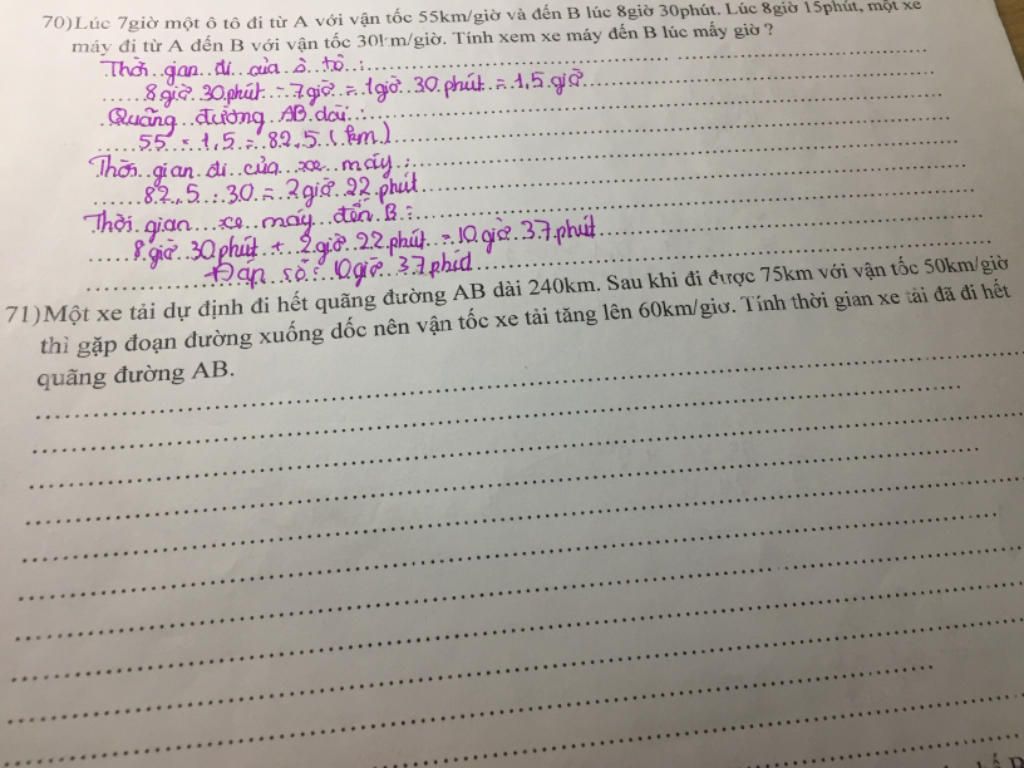 70)Lúc 7giờ một ô tô đi từ A với vận tốc 55km/giờ và đến B lúc 8giờ 30phút. Lúc 8giờ 15phút, một xe
máy đi từ A đến B với vận tốc 30km/giờ. Tính xem xe máy đến B lúc mấy giờ ?
Thời gian đi của ô tô :
8 giờ 30 phút - 7 giờ = 1 giờ 30 phút = 1,5 giờ
Quãng đường AB dài :
55 × 1,5 = 82,5 (km)
Thời gian đi của xe máy :
82,5 : 30 = 2 giờ 22 phút
Thời gian xe máy đến B :
8 giờ 30 phút + 2 giờ 22 phút = 10 giờ 37 phút
Đáp số : 10 giờ 37 phút
71)Một xe tải dự định đi hết quãng đường AB dài 240km. Sau khi đi được 75km với vận tốc 50km/giờ
thì gặp đoạn đường xuống dốc nên vận tốc xe tải tăng lên 60km/giơ. Tính thời gian xe tải đã đi hết
quãng đường AB.